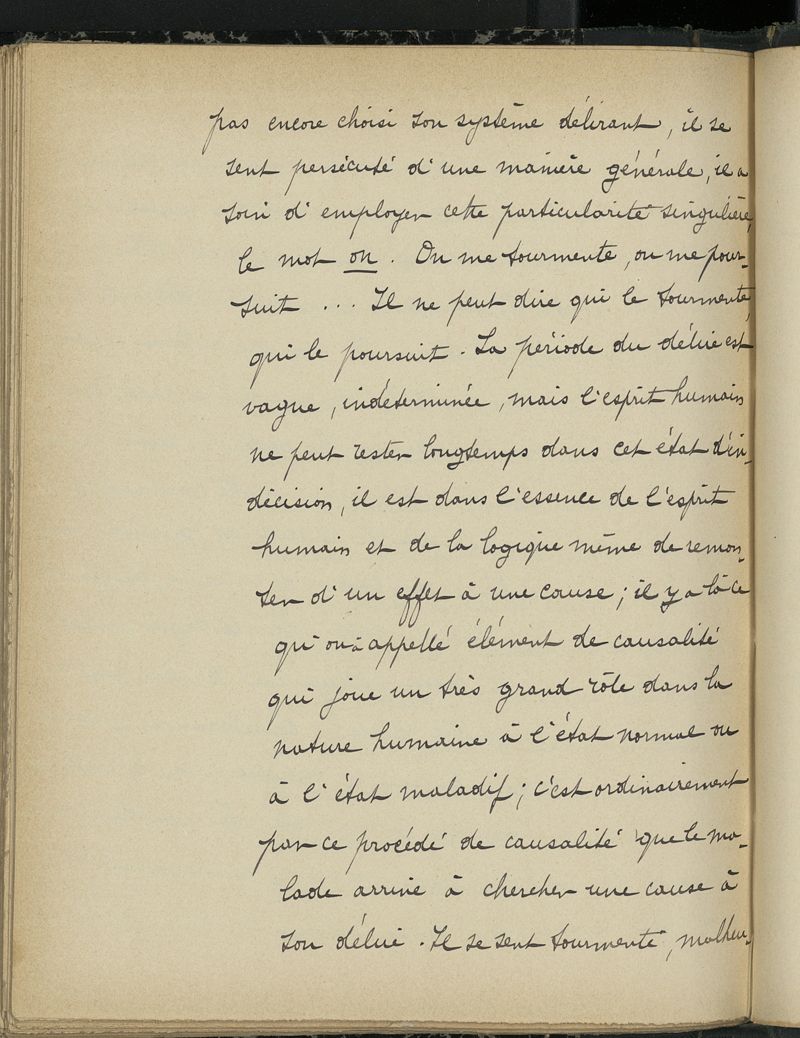 pas encore choisi son système délirant, il se
sent persécuté d'une manière générale, il a
soin d'employer cette particularité singulière,
le mot on. On me tourmente, on me pour-
suit ... Il ne peut dire qui le tourmente,
qui le poursuit. La période du délire est
vague, indéterminée, mais l'esprit humain
ne peut rester longtemps dans cet état d'in-
décision, il est dans l'essence de l'esprit
humain et de la logique même de remon-
ter d'un effet à une cause; il y a là ce
qu'on a appellé élément de causalité
qui joue un très grand rôle dans la
nature humaine à l'état normal ou
à l'état maladif; c'est ordinairement
par ce procédé de causalité que le ma-
lade arrive à chercher une cause à
son délire. Il se sent tourmenté, malheu-